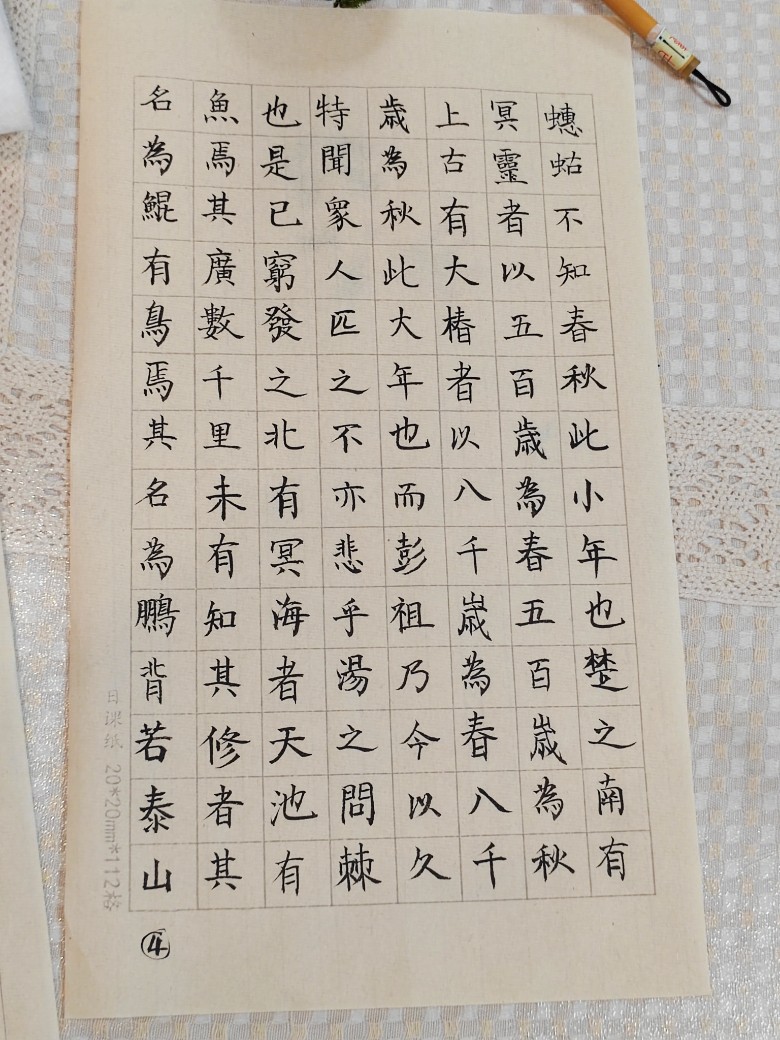 蟪蛄不知春秋此小年也楚之南有
冥靈者以五百歲為春五百歲為秋
上古有大椿者以八千歲為春八千
歲為秋此大年也而彭祖乃今以久
特聞眾人匹之不亦悲乎湯之問棘
也是已窮發之北有冥海者天池有
魚焉其廣數千里未有知其修者其
名為鯤有鳥焉其名為鵬背若泰山
日课纸 20*20mm*112格
④